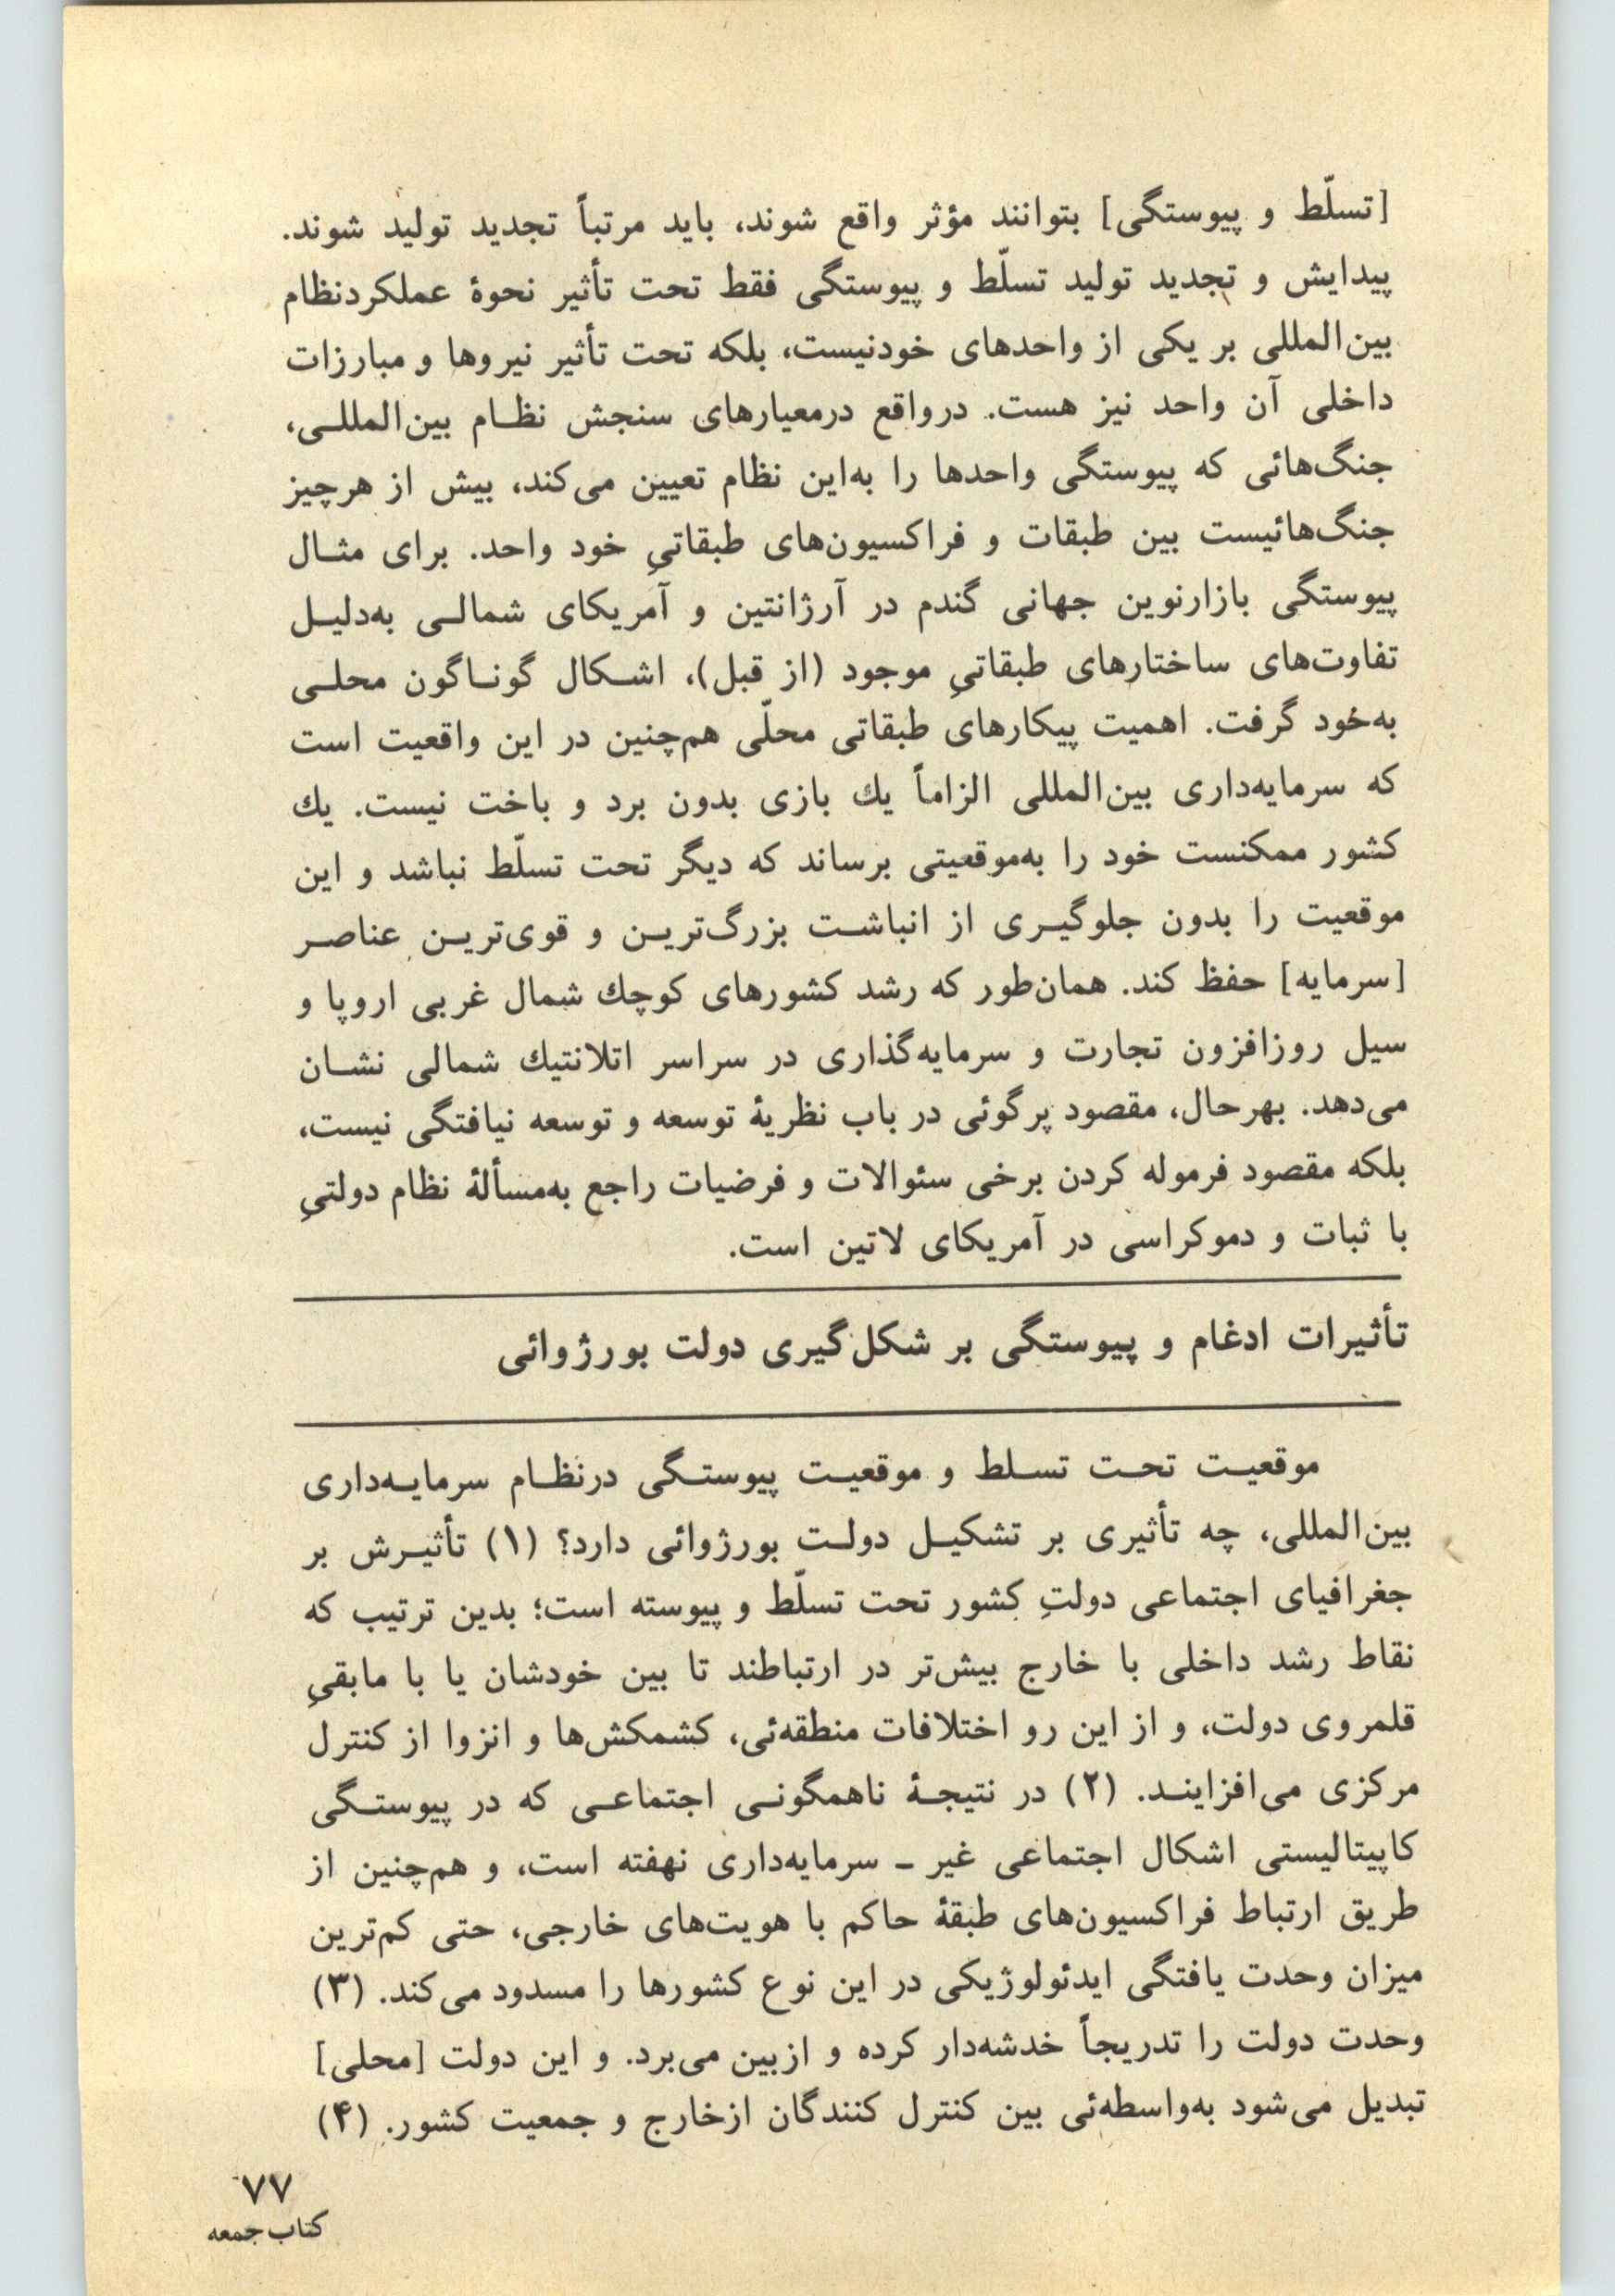 [تسلّط و پیوستگی] بتوانند مؤثر واقع شوند، باید مرتباً تجدید تولید شوند.
پیدایش و تجدید تولید تسلّط و پیوستگی فقط تحت تأثیر نحوهٔ عملکردنظام
بین‌المللی بر یکی از واحدهای خودنیست، بلکه تحت تأثیر نیروها و مبارزات
داخلی آن واحد نیز هست. درواقع درمعیارهای سنجش نظـام بین‌المللـی،
جنگ‌هائی که پیوستگی واحدها را به‌این نظام تعیین می‌کند، بیش از هرچیز
جنگ‌هائیست بین طبقات و فراکسیون‌های طبقاتیِ خود واحد. برای مثـال
پیوستگی بازارنوین جهانی گندم در آرژانتین و آمریکای شمالـی به‌دلیـل
تفاوت‌های ساختارهای طبقاتیِ موجود (از قبل)، اشـکال گونـاگون محلـی
به‌خود گرفت. اهمیت پیکارهای طبقاتی محلّی هم‌چنین در این واقعیت است
که سرمایه‌داری بین‌المللی الزاماً يك بازی بدون برد و باخت نیست. يك
کشور ممکنست خود را به‌موقعیتی برساند که دیگر تحت تسلّط نباشد و این
موقعیت را بدون جلوگیـری از انباشـت بزرگ‌تریـن و قوی‌تریـن عناصـر
[سرمایه] حفظ کند. همان‌طور که رشد کشورهای کوچك شمال غربی اروپا و
سیل روزافزون تجارت و سرمایه‌گذاری در سراسر اتلانتیك شمالی نشـان
می‌دهد. بهرحال، مقصود پرگوئی در باب نظریهٔ توسعه و توسعه نیافتگی نیست،
بلکه مقصود فرموله کردن برخی سئوالات و فرضیات راجع به‌مسألهٔ نظام دولتیِ
با ثبات و دموکراسی در آمریکای لاتین است.
تأثیرات ادغام و پیوستگی بر شکل‌گیری دولت بورژوائی
موقعیـت تحـت تسـلط و موقعیـت پیوستـگی درنظـام سرمایـه‌داری
بین‌المللی، چه تأثیری بر تشکیـل دولـت بورژوائی دارد؟ (۱) تأثیـرش بر
جغرافیای اجتماعی دولتِ کشور تحت تسلّط و پیوسته است؛ بدین ترتیب که
نقاط رشد داخلی با خارج بیش‌تر در ارتباطند تا بین خودشان یا با مابقیِ
قلمروی دولت، و از این رو اختلافات منطقه‌ئی، کشمکش‌ها و انزوا از کنترل
مرکزی می‌افزاینـد. (۲) در نتیجـهٔ ناهمگونـی اجتماعـی که در پیوستـگی
کاپیتالیستی اشکال اجتماعی غیر ـ سرمایه‌داری نهفته است، و هم‌چنین از
طریق ارتباط فراکسیون‌های طبقهٔ حاکم با هویت‌های خارجی، حتی کم‌ترین
میزان وحدت یافتگی ایدئولوژیکی در این نوع کشورها را مسدود می‌کند. (۳)
وحدت دولت را تدریجاً خدشه‌دار کرده و ازبین می‌برد. و این دولت [محلی]
تبدیل می‌شود به‌واسطه‌ئی بین کنترل کنندگان ازخارج و جمعیت کشور. (۴)
۷۷
کتاب جمعه